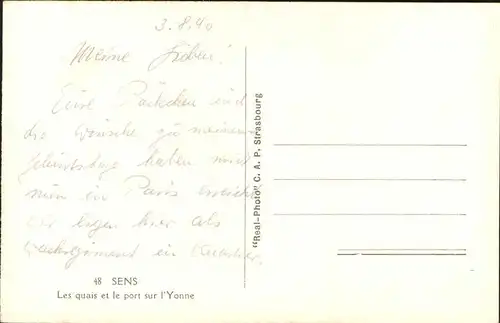 3.8.40
Meine Lieben!
Eure Päckchen und
die Wünsche zu meinem
Geburtstag haben mich
nun in Paris erreicht
wir liegen hier als
in
48 SENS
Les quais et le port sur l'Yonne
"Real-Photo" C. A. P. Strasbourg